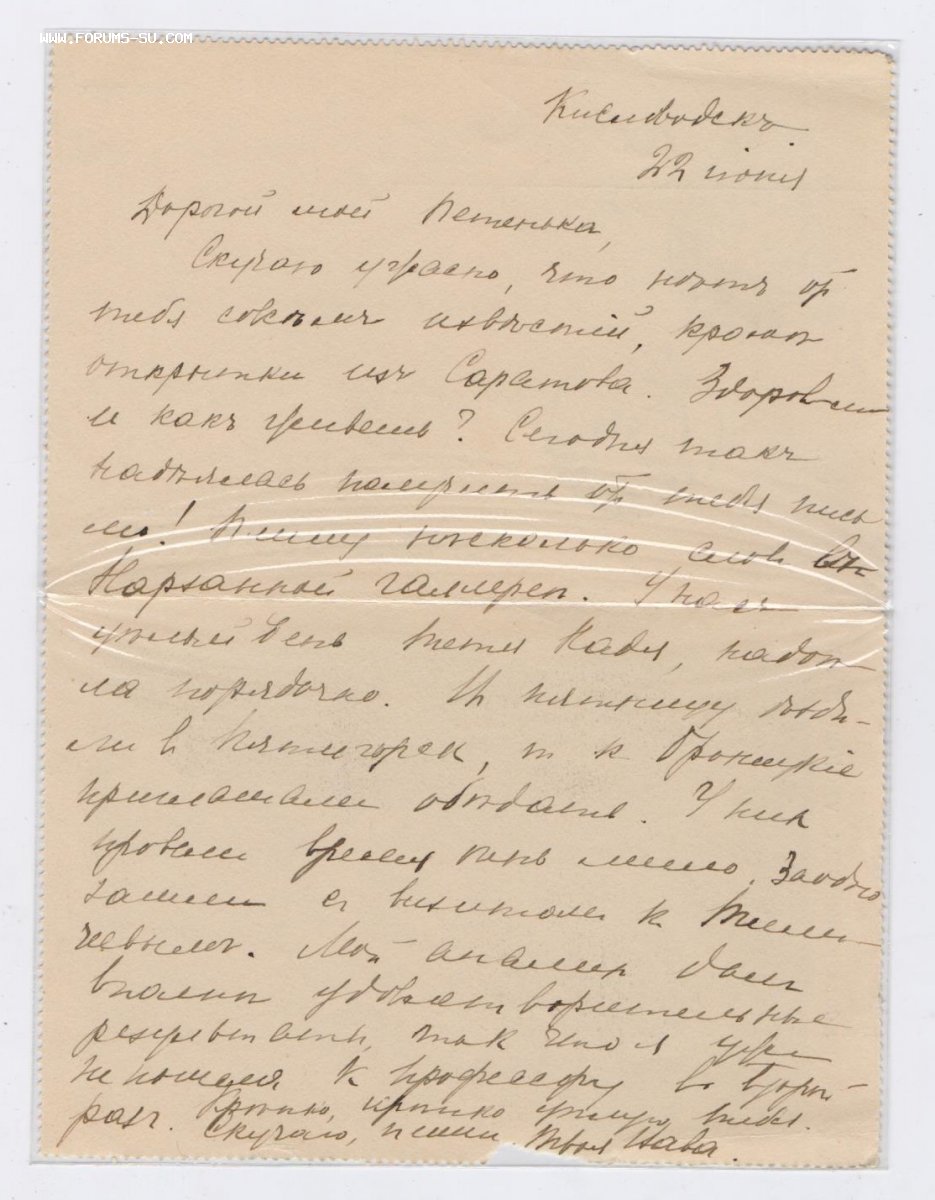 WWW.FORUMS-SU.COM
Кисловодскъ
22 іюня
Дорогой мой Петенька,
Скучаю ужасно, что нѣтъ от
тебя совсѣмъ извѣстій, кромѣ
открытки изъ Саратова. Здоров ли
и какъ живешь? Сегодня такъ
надѣялась получить от тебя пись
мо! Пишу нѣсколько слов въ
Нарзанной галлереѣ. У насъ
цѣлый день тетя Надя, надоѣ
ла порядочно. В пятницу ѣзди-
ли в Пятигорск, т к
приглашали обѣдать. У них
провели время очень мило. Заодно
зашли с визитом к
Мой анализ дал
вполнѣ удовлетворительные
результаты, так что я уже
не пошла к профессору во второй
раз. Крѣпко, крѣпко цѣлую тебя.
Скучаю, пиши Твоя